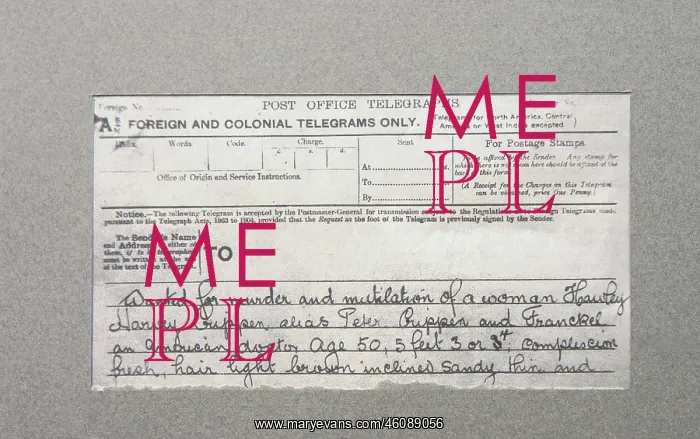 Foreign No.
POST OFFICE TELEGRAPHS
No.
A
FOREIGN AND COLONIAL TELEGRAMS ONLY.
Telegrams for North America, Central
America or West Indies excepted.
Prefix. Words. Code. Charge.
£ s. d.
Office of Origin and Service Instructions.
Sent
At
To
By
For Postage Stamps.
To be affixed by the Sender. Any stamp for
which there is not room here should be affixed at the
back of this form.
(A Receipt for the Charges on this Telegram
can be obtained, price One Penny.)
Notice.—The following Telegram is accepted by the Postmaster-General for transmission subject to the Regulations Foreign Telegrams made
pursuant to the Telegraph Acts, 1863 to 1904, provided that the Request at the foot of the Telegram is previously signed by the Sender.
The Sender's Name
and Address, if either of
them, is to be telegraphed
must be written at the end
of the text of the Telegram.
TO
Wanted for murder and mutilation of a woman Hawley
Harvey Crippen alias Peter Crippin and Franckel
an American doctor Age 50, 5 feet 3 or 4, complexcion
fresh, hair light brown inclined sandy thin and
ME
PL
ME
PL
www.maryevans.com/46089056